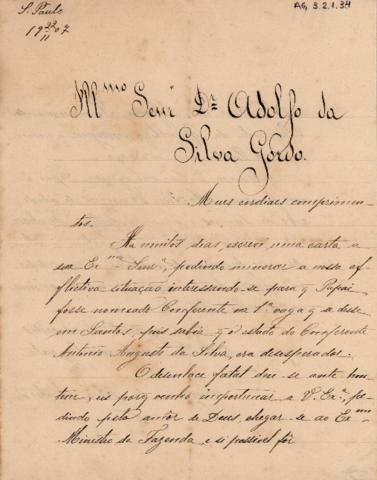 S. Paulo
AG 3.2.1.34
19 22/11 07
Mmo Senr Dr. Adolfo da
Silva Gordo.
Meus cordiaes comprimen-
tos.
Ha muitos dias, escrevi uma carta a
sua Exma Senra, pedindo minorar a nossa af-
flictiva situação interessando-se para q Papai
fosse nomeado Conferente na 1ª vaga q se desse
em Santos, pois sabia q o estado do Conferente
Antonio Augusto da Silva, era desesperador.
O desenlace fatal deu-se ante hon-
tem, eis porq venho importunar a V. Exª, pe-
dindo pelo amor de Deus, chegar-se ao Exmo
Ministro da Fazenda, e si possivel fôr